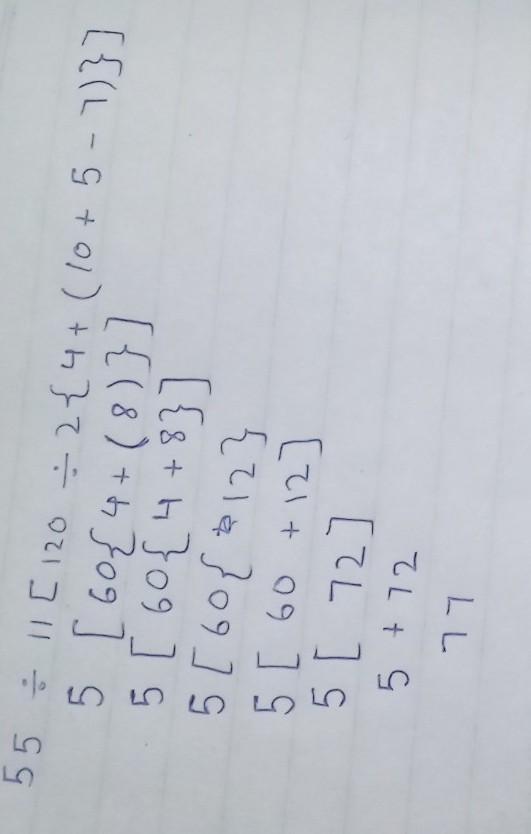 55 ÷ 11 [ 120 ÷ 2 { 4 + ( 10 + 5 - 7 ) } ]
5 [ 60 { 4 + ( 8 ) } ]
5 [ 60 { 4 + 8 } ]
5 [ 60 { 12 }
5 [ 60 + 12 ]
5 [ 72 ]
5 + 72
77